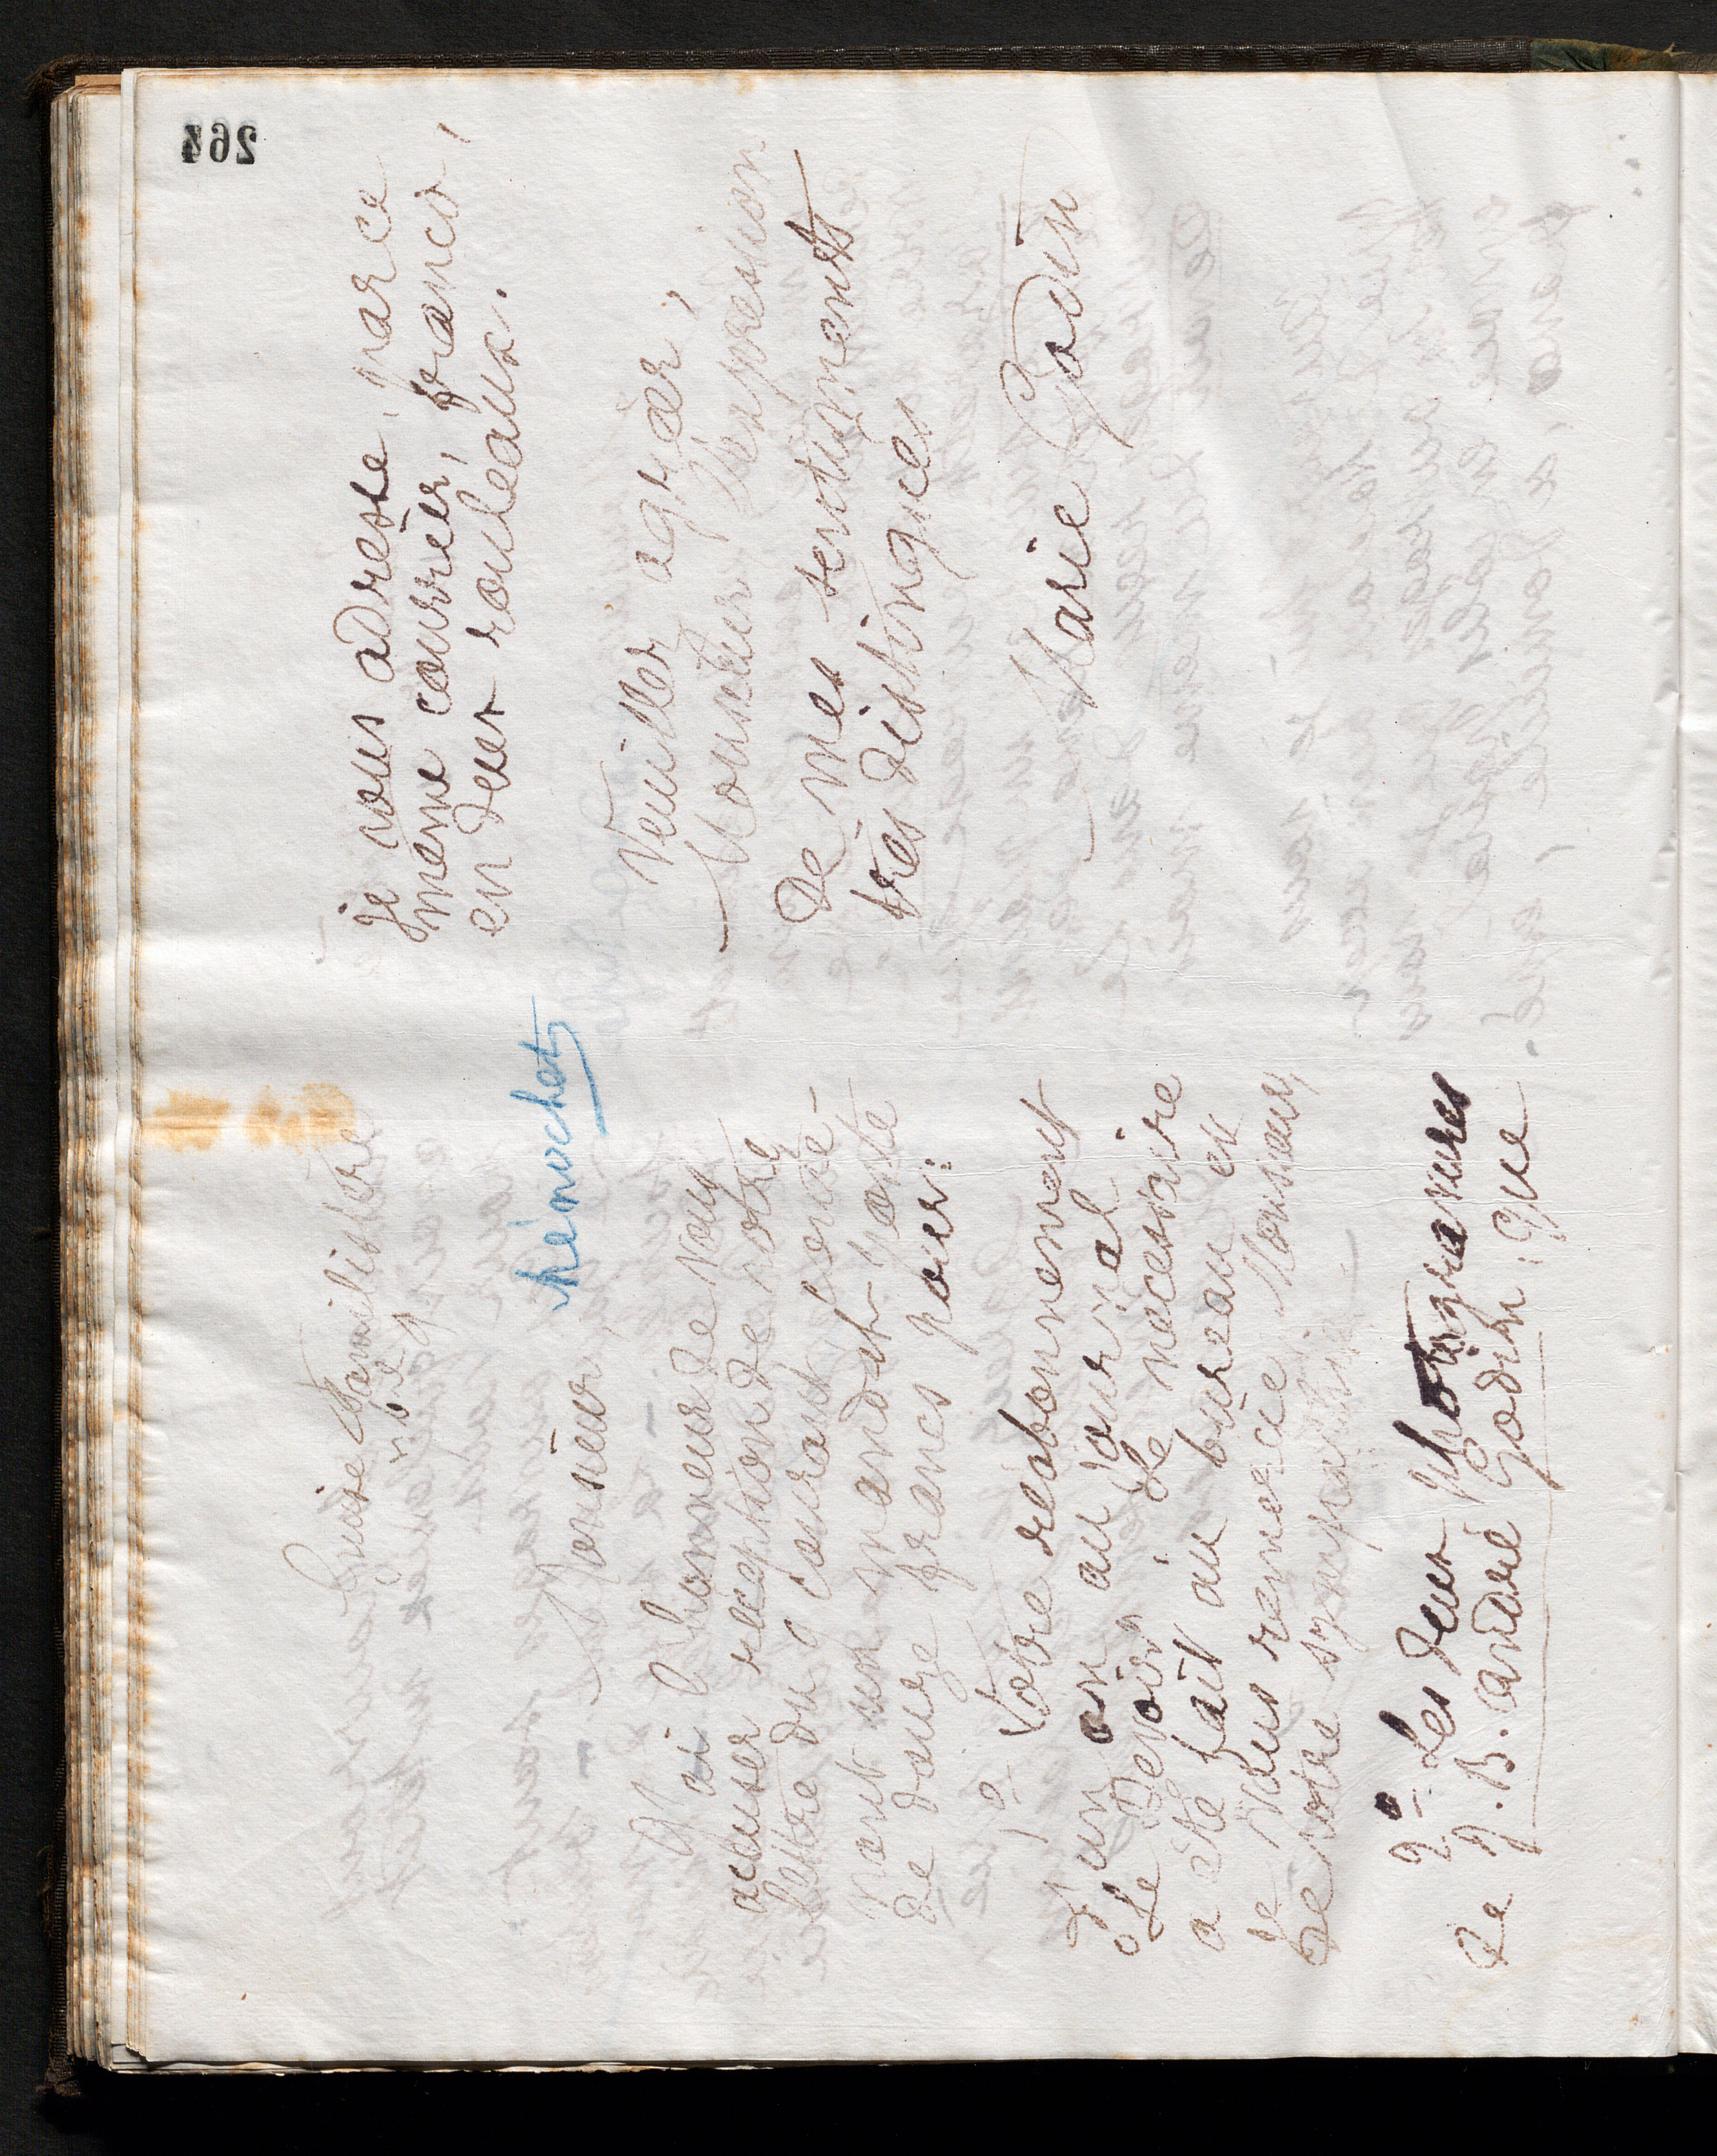 Guise Familistère
Monsieur,
hénochet
J'ai l'honneur de vous
accuser réception de votre
lettre du 9 courant conte-
nant un mandat-poste
de douze francs pour:
1o Votre réabonnement
d'un an au journal
"Le Devoir". Le nécessaire
a été fait au bureau et
je vous remercie, Monsieur,
de votre sympathie.
2o Les deux photogravures
de J. B. André Godin: que
je vous adresse, par ce
même courrier, franco,
en deux rouleaux.
Veuillez agréer,
Monsieur, l'expression
de mes sentiments
très distingués
Marie Godin
264